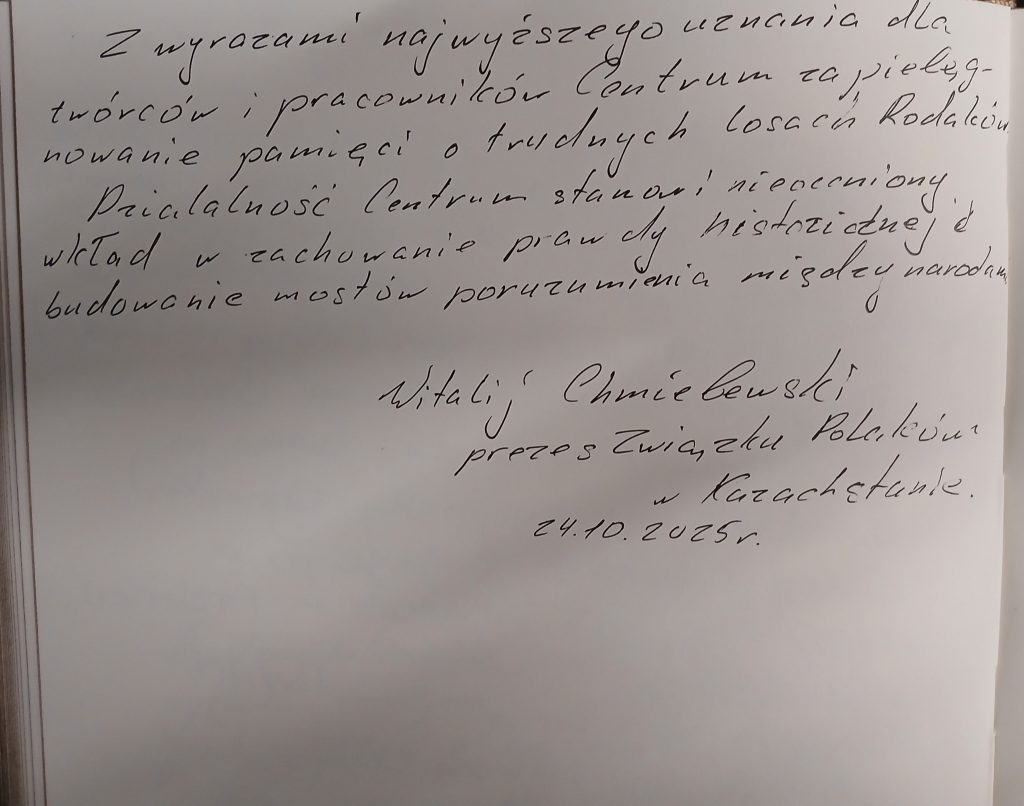 Z wyrazami najwyższego uznania dla
twórców i pracowników Centrum za pielęg-
nowanie pamięci o trudnych losach Rodaków
Działalność Centrum stanowi nieoceniony
wkład w zachowanie prawdy historicznej i
budowanie mostów porozumienia między narodami
Witalij Chmielewski
prezes Związku Polaków
w Kazachstanie.
24.10.2025r.